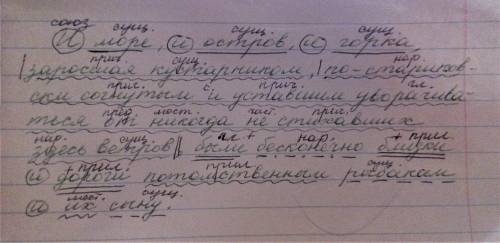 союз сущ. сущ. сущ.
И море, и остров, и горка,
прич. сущ. нар.
заросшая кустарником, по-стариков-
прил. с. прич. гл.
ски согнутым и уставшим уворачива-
пред. мест. част. прич.
ться от никогда не стихавших
нар. сущ. гл + нар. + прил.
здесь ветров были бесконечно близки
+ прил. прил. сущ
и дороги потомственным рыбакам
мест. сущ.
и их сыну.